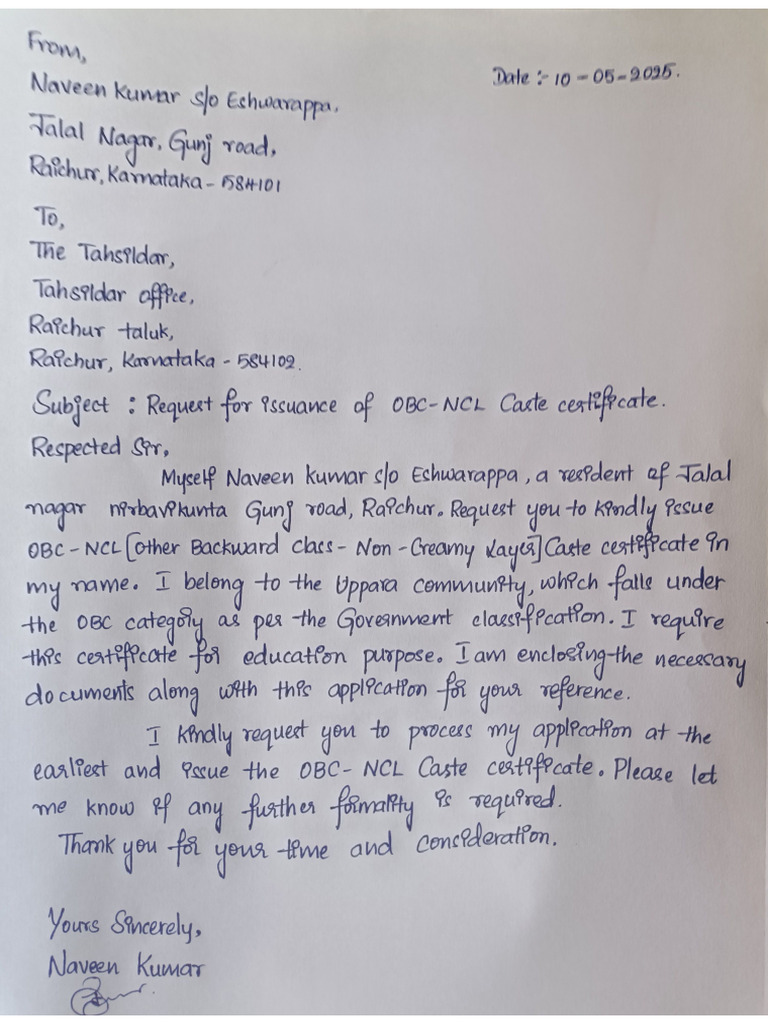 From,
Date :- 10-05-2025.
Naveen Kumar s/o Eshwarappa,
Jalal Nagar, Gunj road,
Raichur, Karnataka - 584101
To,
The Tahsildar,
Tahsildar office,
Raichur taluk,
Raichur, Karnataka - 584102.
Subject : Request for issuance of OBC-NCL Caste certificate.
Respected Sir,
Myself Naveen kumar s/o Eshwarappa, a resident of Jalal
nagar nirbavikunta Gunj road, Raichur. Request you to kindly issue
OBC-NCL [Other Backward Class- Non-Creamy Layer] Caste certificate in
my name. I belong to the Uppara community, which falls under
the OBC category as per the Government classification. I require
this certificate for education purpose. I am enclosing the necessary
documents along with this application for your reference.
I kindly request you to process my application at the
earliest and issue the OBC-NCL Caste certificate. Please let
me know if any further formality is required.
Thank you for your time and consideration.
Yours Sincerely,
Naveen Kumar